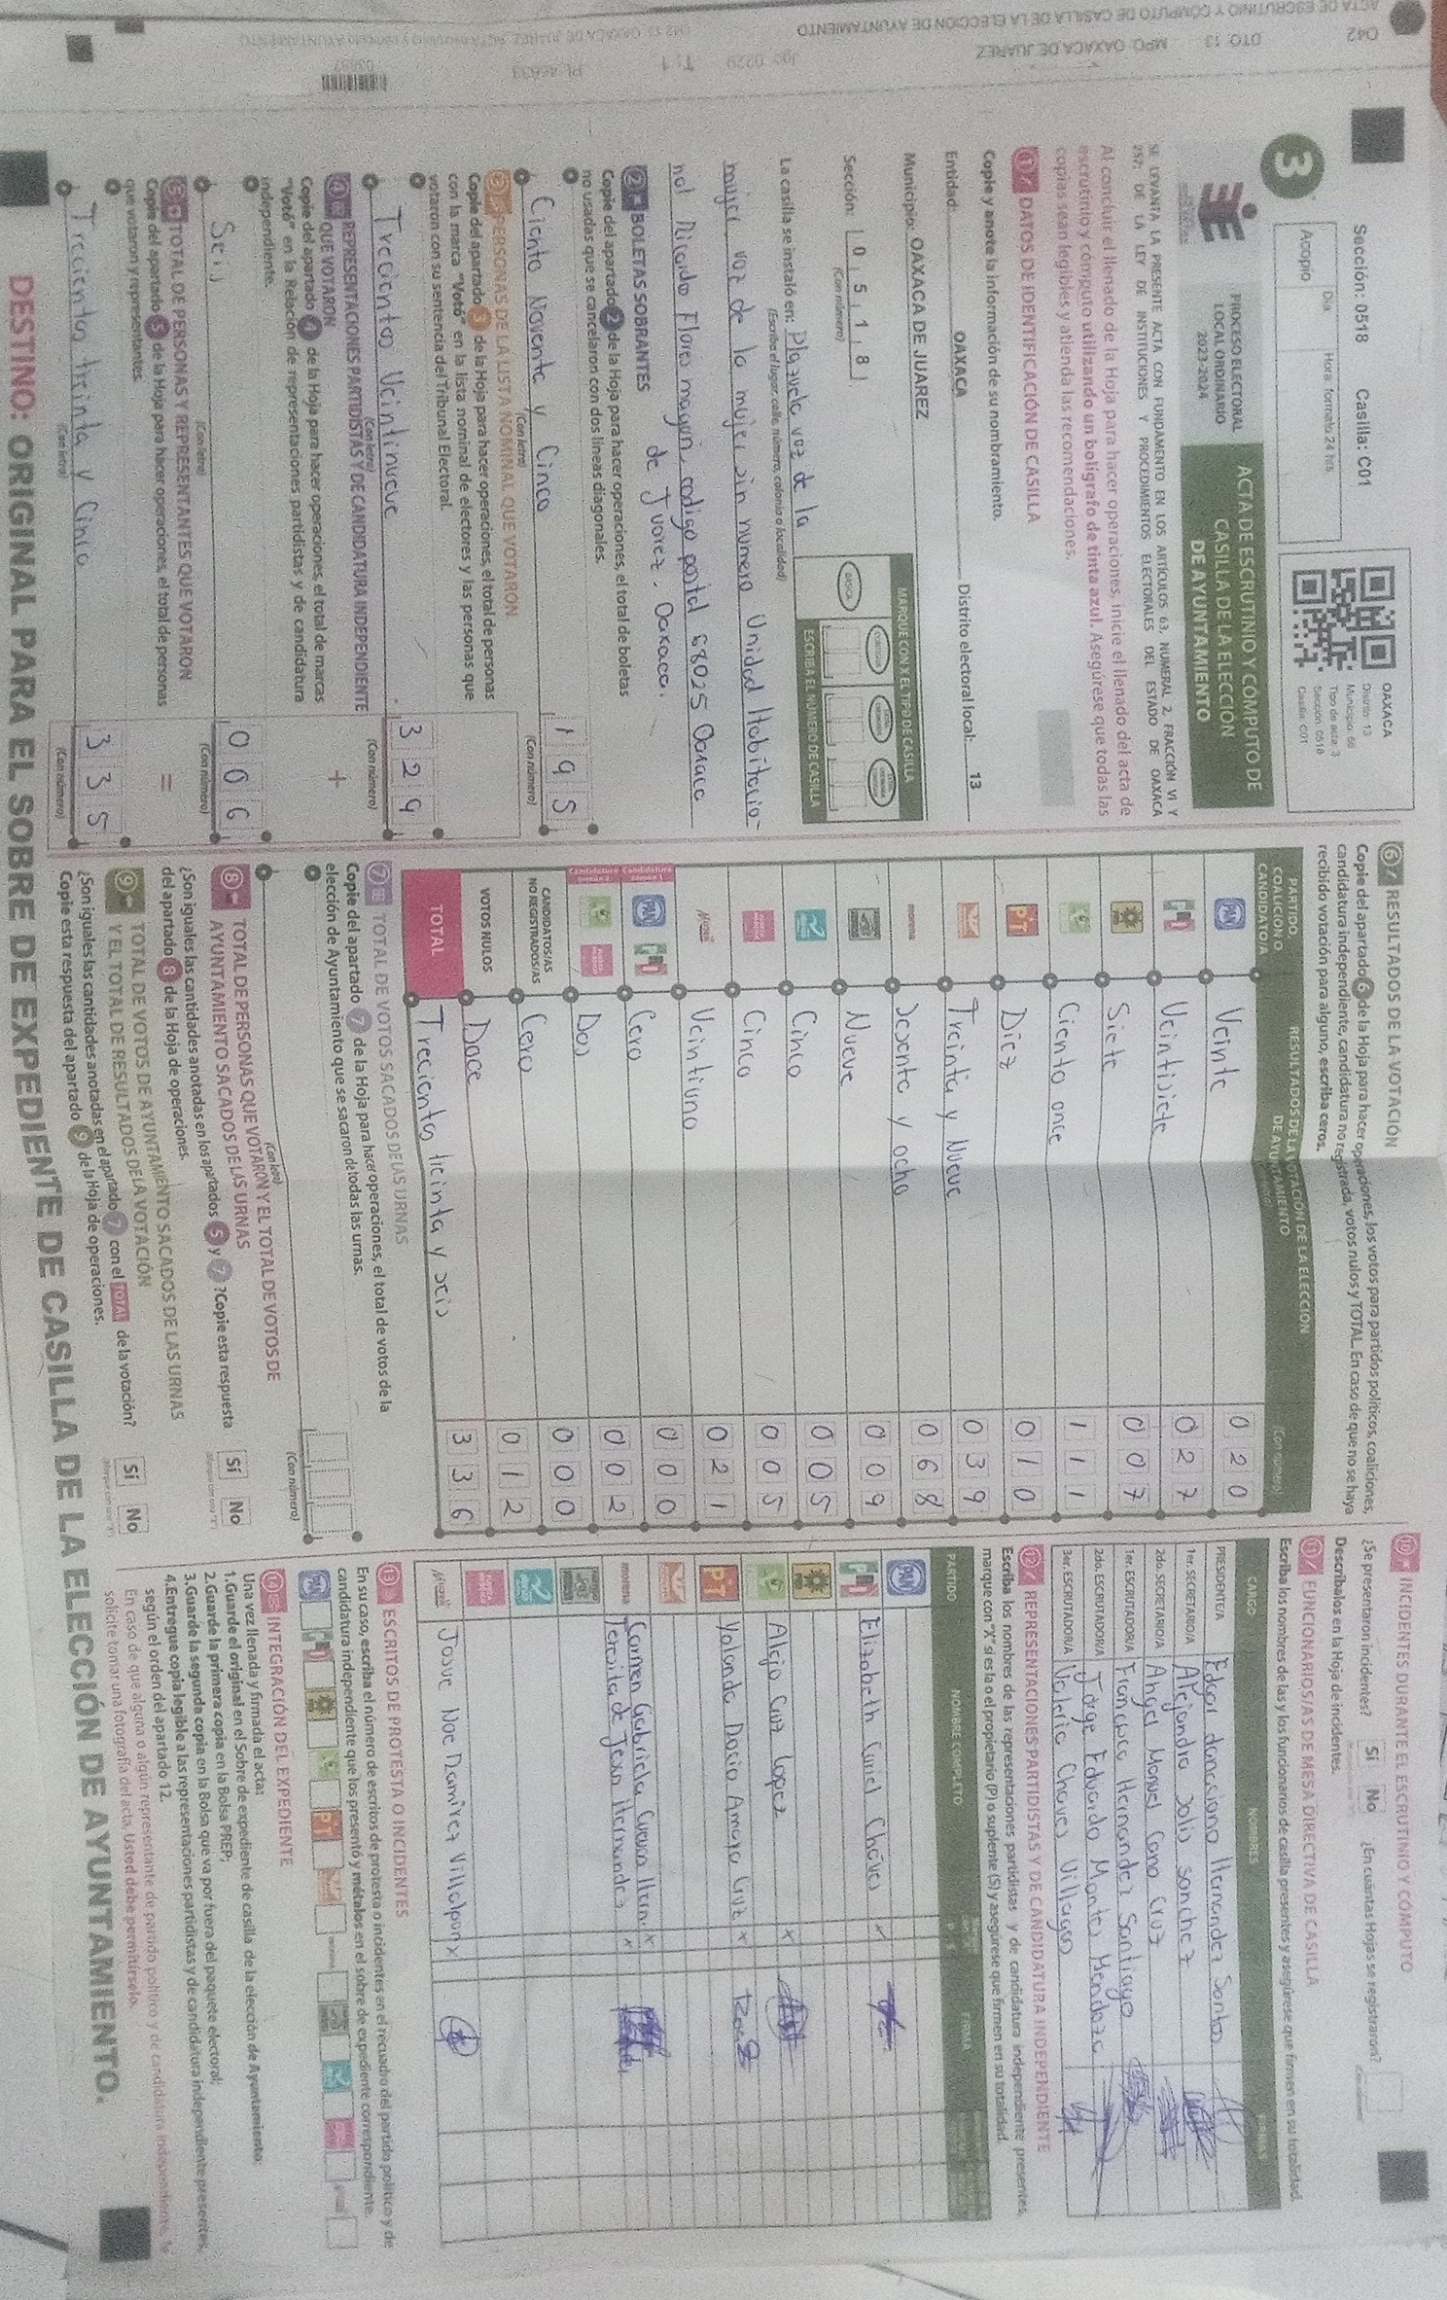 042 DTO 13 MPO: OAXACA DE JUAREZ
ACTA DE ESCRUTINIO Y COMPUTO DE CASILLA DE LA ELECCION DE AYUNTAMIENTO
Sección: 0518 Casilla: C01
Día Hora: formato 24 hrs.
Acopio
OAXACA
Distrito: 13
Municipio: 66
Tipo de acta: 3
Sección: 0518
Casilla: C01
3
PROCESO ELECTORAL
LOCAL ORDINARIO
2023-2024
ACTA DE ESCRUTINIO Y CÓMPUTO DE
CASILLA DE LA ELECCIÓN
DE AYUNTAMIENTO
SE LEVANTA LA PRESENTE ACTA CON FUNDAMENTO EN LOS ARTÍCULOS 63, NUMERAL 2, FRACCIÓN VI Y
257; DE LA LEY DE INSTITUCIONES Y PROCEDIMIENTOS ELECTORALES DEL ESTADO DE OAXACA
Al concluir el llenado de la Hoja para hacer operaciones, inicie el llenado del acta de
escrutinio y cómputo utilizando un bolígrafo de tinta azul. Asegúrese que todas las
copias sean legibles y atienda las recomendaciones.
1 DATOS DE IDENTIFICACIÓN DE CASILLA
Copie y anote la información de su nombramiento.
Entidad: OAXACA Distrito electoral local: 13
Municipio: OAXACA DE JUAREZ
MARQUE CON X EL TIPO DE CASILLA
Sección: 0 5 1 8
(Con número)
BÁSICA
ESCRIBA EL NÚMERO DE CASILLA
La casilla se instaló en: Plazuela voz de la
(Escriba el lugar, calle, número, colonia o localidad)
mujer, voz de la mujer sin numero Unidad Habitacio-
nal Ricardo Flores magon, codigo postal 68025 Oaxaca
de Juarez, Oaxaca.
2 BOLETAS SOBRANTES
Copie del apartado 2 de la Hoja para hacer operaciones, el total de boletas
no usadas que se cancelaron con dos líneas diagonales.
Ciento Noventa y Cinco 1 9 5
(Con letra) (Con número)
3 PERSONAS DE LA LISTA NOMINAL QUE VOTARON
Copie del apartado 3 de la Hoja para hacer operaciones, el total de personas
con la marca "Votó" en la lista nominal de electores y las personas que
votaron con su sentencia del Tribunal Electoral.
Trecientos Veintinueve 3 2 9
(Con letra) (Con número)
4 REPRESENTACIONES PARTIDISTAS Y DE CANDIDATURA INDEPENDIENTE
QUE VOTARON
+
Copie del apartado 4 de la Hoja para hacer operaciones, el total de marcas
"Votó" en la Relación de representaciones partidistas y de candidatura
independiente.
Seis 0 0 6
(Con letra) (Con número)
5 TOTAL DE PERSONAS Y REPRESENTANTES QUE VOTARON
=
Copie del apartado 5 de la Hoja para hacer operaciones, el total de personas
que votaron y representantes.
Trecientos treinta y Cinco 3 3 5
(Con letra) (Con número)
6 RESULTADOS DE LA VOTACIÓN
Copie del apartado 6 de la Hoja para hacer operaciones, los votos para partidos políticos, coaliciones,
candidatura independiente, candidatura no registrada, votos nulos y TOTAL. En caso de que no se haya
recibido votación para alguno, escriba ceros.
PARTIDO, COALICIÓN O CANDIDATO/A
RESULTADOS DE LA VOTACIÓN DE LA ELECCIÓN
DE AYUNTAMIENTO
(Con número)
PAN Veinte 0 2 0
PRI Veintisiete 0 2 7
Siete 0 0 7
Ciento once 1 1 1
PT Diez 0 1 0
Treinta y Nueve 0 3 9
morena Sesenta y ocho 0 6 8
Nueve 0 0 9
Cinco 0 0 5
Cinco 0 0 5
Veintiuno 0 2 1
PAN PRI Cero 0 0 0
Dos 0 0 2
CANDIDATOS/AS
NO REGISTRADOS/AS Cero 0 0 0
VOTOS NULOS Doce 0 1 2
TOTAL Trecientos treinta y seis 3 3 6
7 TOTAL DE VOTOS SACADOS DE LAS URNAS
Copie del apartado 7 de la Hoja para hacer operaciones, el total de votos de la
elección de Ayuntamiento que se sacaron de todas las urnas.
(Con letra) (Con número)
8 TOTAL DE PERSONAS QUE VOTARON Y EL TOTAL DE VOTOS DE
AYUNTAMIENTO SACADOS DE LAS URNAS
¿Son iguales las cantidades anotadas en los apartados 5 y 7 ? Copie esta respuesta
del apartado 8 de la Hoja de operaciones.
Sí No
9 TOTAL DE VOTOS DE AYUNTAMIENTO SACADOS DE LAS URNAS
Y EL TOTAL DE RESULTADOS DE LA VOTACIÓN
¿Son iguales las cantidades anotadas en el apartado 7 con el TOTAL de la votación?
Copie esta respuesta del apartado 9 de la Hoja de operaciones.
Sí No
10 INCIDENTES DURANTE EL ESCRUTINIO Y CÓMPUTO
¿Se presentaron incidentes? Sí No ¿En cuántas Hojas se registraron?
Descríbalos en la Hoja de incidentes.
11 FUNCIONARIOS/AS DE MESA DIRECTIVA DE CASILLA
Escriba los nombres de las y los funcionarios de casilla presentes y asegúrese que firmen en su totalidad.
CARGO NOMBRES FIRMAS
PRESIDENTE/A Edgar donaciano Hernandez Santos
1er. SECRETARIO/A Alejandra solis sanchez
2do. SECRETARIO/A Angel Manuel Cano Cruz
1er. ESCRUTADOR/A Francisca Hernandez Santiago
2do. ESCRUTADOR/A Jorge Eduardo Montes Mendoza
3er. ESCRUTADOR/A Valeria Chaves Villagas
12 REPRESENTACIONES PARTIDISTAS Y DE CANDIDATURA INDEPENDIENTE
Escriba los nombres de las representaciones partidistas y de candidatura independiente presentes,
marque con "X" si es la o el propietario (P) o suplente (S) y asegúrese que firmen en su totalidad.
PARTIDO NOMBRE COMPLETO P S FIRMA
PAN
PRI Elizabeth Curiel Cháves x
Alejo Cruz Lopez x
PT Yolanda Rocio Amaya Cruz x
morena Carmen Gabriela Cuevas Hern. x
Teresita de Jesus Hernandez x
Josue Noe Ramirez Villalpan x
13 ESCRITOS DE PROTESTA O INCIDENTES
En su caso, escriba el número de escritos de protesta o incidentes en el recuadro del partido político y de
candidatura independiente que los presentó y métalos en el sobre de expediente correspondiente.
PAN PRI PT
14 INTEGRACIÓN DEL EXPEDIENTE
Una vez llenada y firmada el acta:
1.Guarde el original en el Sobre de expediente de casilla de la elección de Ayuntamiento;
2.Guarde la primera copia en la Bolsa PREP;
3.Guarde la segunda copia en la Bolsa que va por fuera del paquete electoral;
4.Entregue copia legible a las representaciones partidistas y de candidatura independiente presentes,
según el orden del apartado 12.
En caso de que alguna o algún representante de partido político y de candidatura independiente, le
solicite tomar una fotografía del acta. Usted debe permitírselo.
DESTINO: ORIGINAL PARA EL SOBRE DE EXPEDIENTE DE CASILLA DE LA ELECCIÓN DE AYUNTAMIENTO.